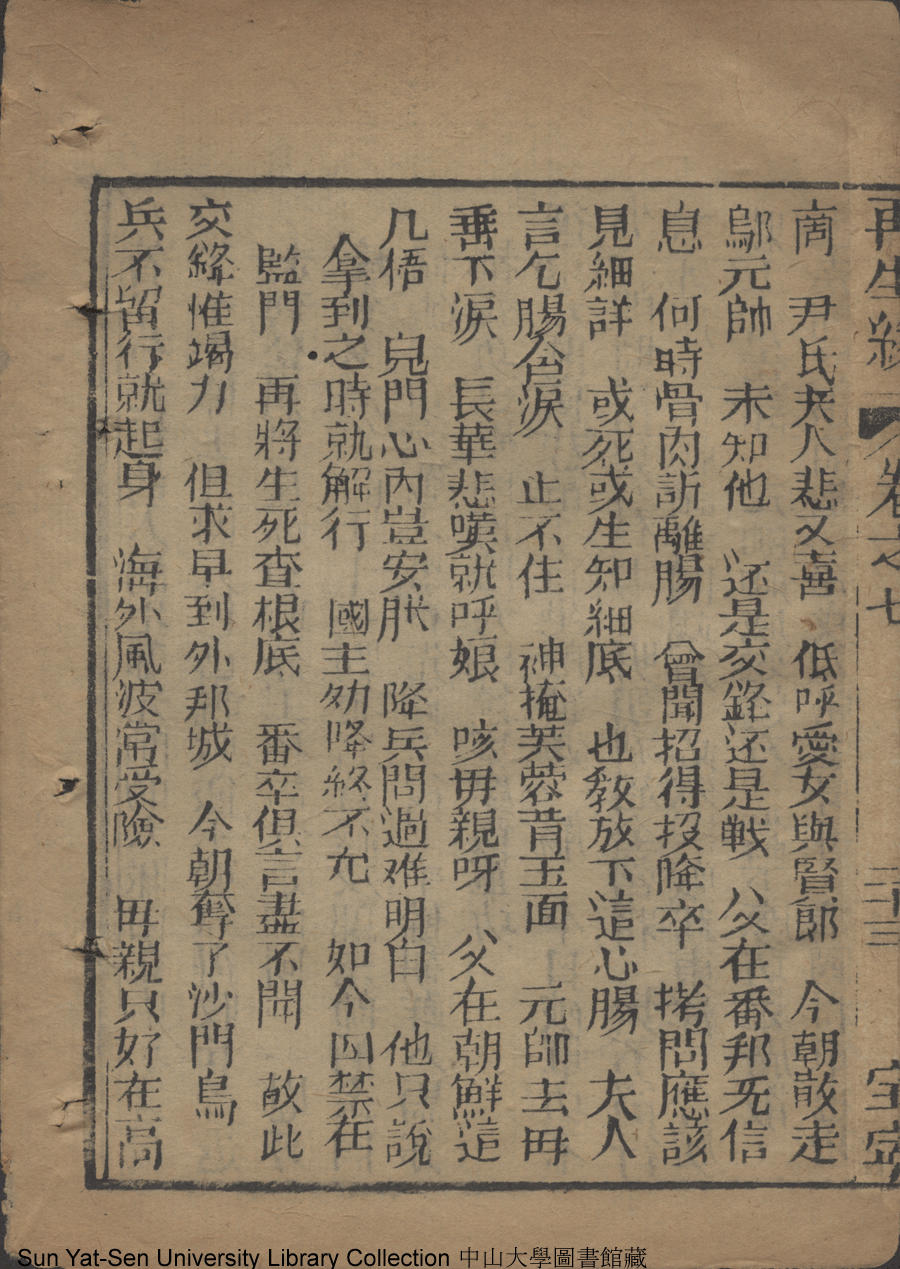 再生緣 卷之七 二十三 宝寧
商 尹氏夫人悲又喜 低呼愛女與賢郎 今朝散走
鄔元帥 未知他 还是交鋒还是戦 父在番邦无信
息 何時骨肉訴離腸 曾聞招得投降卒 拷問應該
見細詳 或死或生知細底 也教放下這心腸 夫人
言乞腸含淚 止不住 袖掩芙蓉昔玉面 元帥去毋
垂下淚 長華悲嘆就呼娘 咳毋親呀 父在朝鮮這
几梧 皃門心內豈安胀 降兵問過难明白 他只說
拿到之時就解行 國主劝降終不允 如今囚禁在
監門 再將生死查根底 番卒俱言盡不聞 故此
交鋒惟竭力 但求早到外邦城 今朝奪了沙門鳥
兵不留行就起身 海外風波常受險 毋親只好在高
Sun Yat-Sen University Library Collection 中山大學圖書館藏